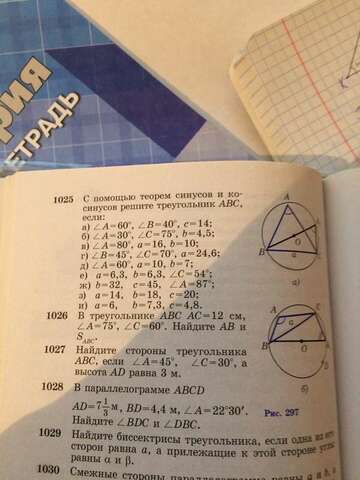 рия
ТЕТРАДЬ
1025 С помощью теорем синусов и ко-
синусов решите треугольник ABC,
если:
а) ∠A=60°, ∠B=40°, c=14;
б) ∠A=30°, ∠C=75°, b=4,5;
в) ∠A=80°, a=16, b=10;
г) ∠B=45°, ∠C=70°, a=24,6;
д) ∠A=60°, a=10, b=7;
е) a=6,3, b=6,3, ∠C=54°;
ж) b=32, c=45, ∠A=87°;
з) a=14, b=18, c=20;
и) a=6, b=7,3, c=4,8.
1026 В треугольнике ABC AC=12 см,
∠A=75°, ∠C=60°. Найдите AB и
S_ABC.
1027 Найдите стороны треугольника
ABC, если ∠A=45°, ∠C=30°, а
высота AD равна 3 м.
1028 В параллелограмме ABCD
AD=7 1/3 м, BD=4,4 м, ∠A=22°30′.
Найдите ∠BDC и ∠DBC.
1029 Найдите биссектрисы треугольника, если одна из его
сторон равна a, а прилежащие к этой стороне углы
равны α и β.
1030 Смежные стороны параллелограмма равны a и b, а
A
B
O
а)
A
a
B
O
D
б)
Рис. 297